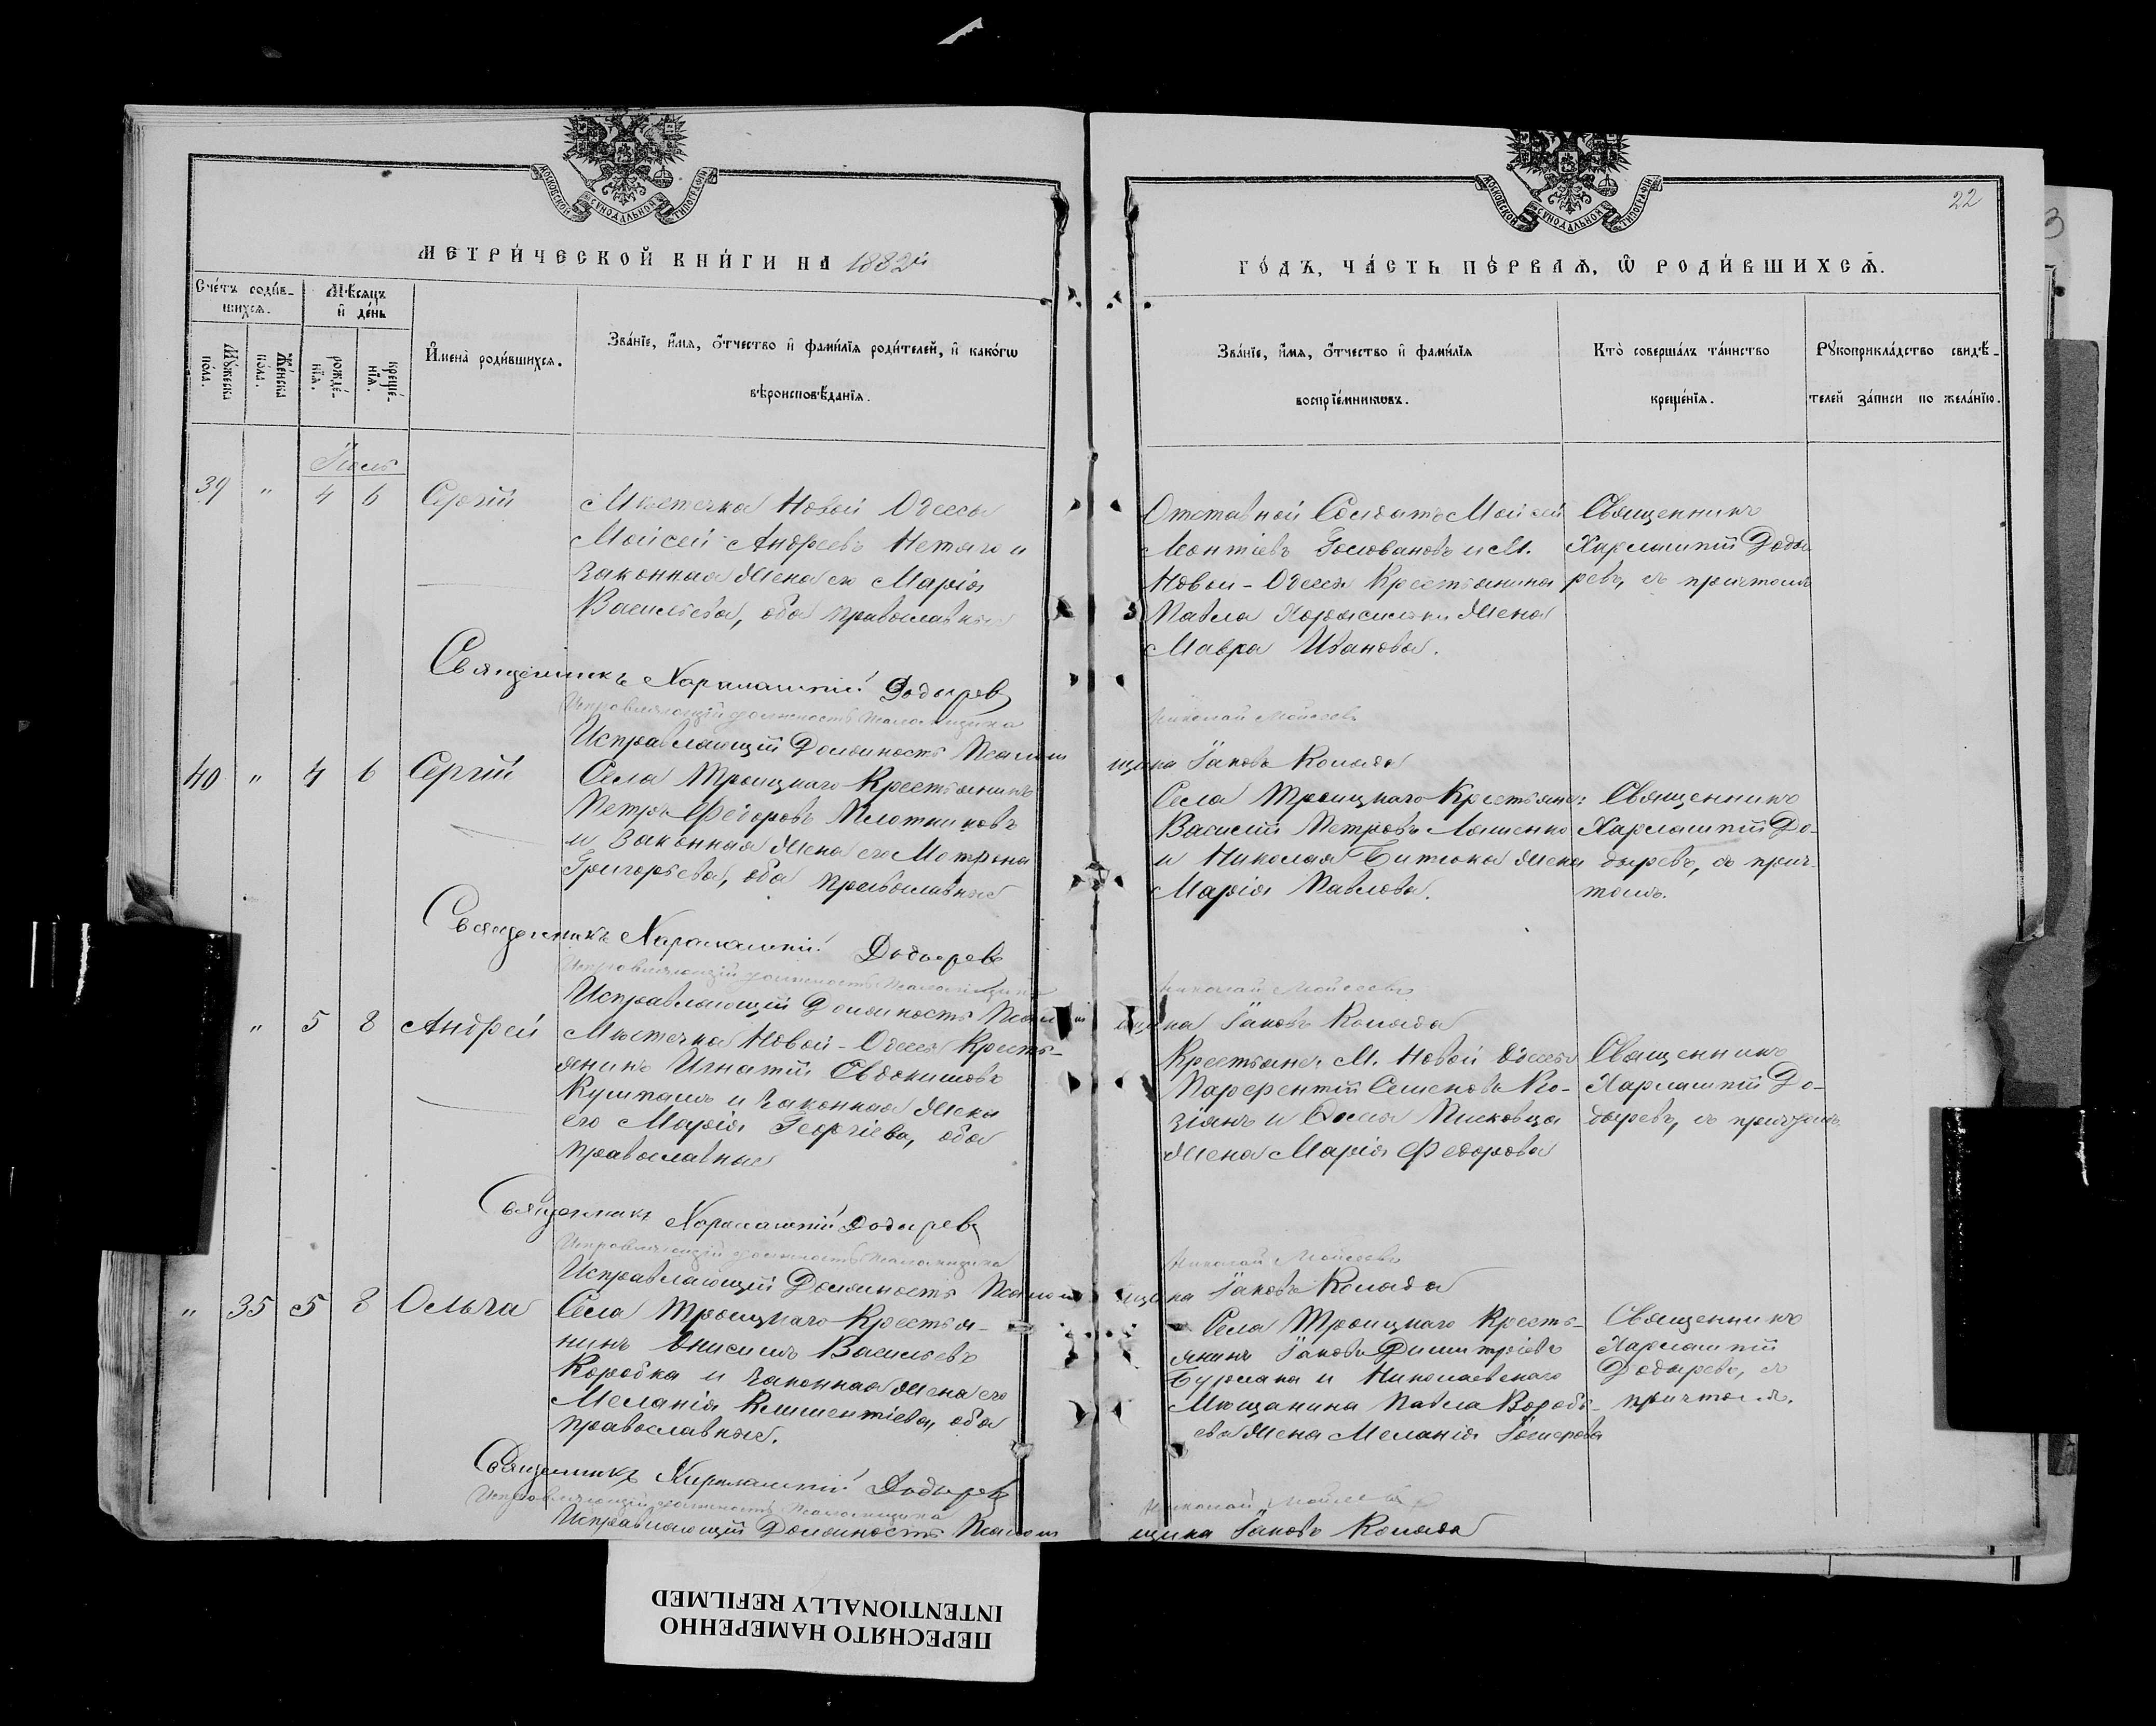 МОСКОВСКОЙ СѴНОДАЛЬНОЙ ТИПОГРАФІИ
МЕТРИ́ЧЕСКОЙ КНИ́ГИ НА 1882й
Сче́тъ роди́в-
шихсѧ.
Мѣ́сѧцъ
и҆ де́нь
Мꙋ́жеска
по́ла.
Же́нска
по́ла.
рожде́-
нїѧ.
креще́-
нїѧ.
И҆мена̀ роди́вшихсѧ.
Зва́нїе, и҆́мѧ, ѻ҆́тчество и҆ фами́лїѧ роди́телей, и҆ како́гѡ
вѣроисповѣ́данїѧ.
Іюль
39 " 4 6 Сергій
Мѣстечка Новой Одессы
Мойсей Андреевъ Нетяго и
законная жена его Марія
Васильева, оба православные
Священникъ Харлампій Додыревъ
Исправляющій должность псаломщика
Исправляющій Должность Псалом
40 " 4 6 Сергій
Села Троицкаго Крестьянинъ
Петръ Федоровъ Плотниковъ
и законная жена его Мотрона
Григорьева, оба православные
Священникъ Харлампій Додыревъ
Исправляющій должность псаломщика
Исправляющій Должность Псалом
" 5 8 Андрей
Мѣстечка Новой-Одессы Кресть-
янинъ Игнатій Евдокимовъ
Кушпаль и законная жена
его Марія Георгіева, оба
православные
Священникъ Харлампій Додыревъ
Исправляющій должность псаломщика
Исправляющій Должность Псалом
" 35 5 8 Ольга
Села Троицкаго Крестья-
нинъ Онисимъ Васильевъ
Коробка и законная жена его
Меланія Климентіева, оба
православные.
Священникъ Харлампій Додыревъ
Исправляющій должность псаломщика
Исправляющій Должность Псалом
МОСКОВСКОЙ СѴНОДАЛЬНОЙ ТИПОГРАФІИ
22
ГО́ДЪ, ЧА́СТЬ ПЕ́РВАѦ, Ѡ҆ РОДИ́ВШИХСѦ.
Зва́нїе, и҆́мѧ, ѻ҆́тчество и҆ фами́лїѧ
воспрїе́мникѡвъ.
Кто̀ соверша́лъ та́инство
креще́нїѧ.
Рꙋкоприкла́дство свидѣ́-
телей за́писи по жела́нїю.
Отставной Солдатъ Мойсей
Леонтіевъ Головановъ и М.
Новой-Одессы Крестьянина
Павла жена
Мавра Иванова.
Священникъ
Харлампій Доды
ревъ, съ причтомъ
Николай Мойсеевъ
щика Іаковъ Коляда
Села Троицкаго Крестьяне:
Василій Петровъ Ляшенко
и Николая Битюка жена
Марія Павлова.
Священникъ
Харлампій До-
дыревъ, съ прич-
томъ.
Николай Мойсеевъ
щика Іаковъ Коляда
Крестьяне, М. Новой Одессы
Парфентій Семеновъ Ко-
зіянъ и Писковца
жена Марія Федорова
Священникъ
Харлампій До-
дыревъ, съ причтомъ.
Николай Мойсеевъ
щика Іаковъ Коляда
Села Троицкаго Кресть-
янинъ Іаковъ Димитріевъ
Бурлака и Николаевскаго
Мѣщанина Павла Воробь-
ева жена Меланія
Священникъ
Харлампій
Додыревъ, съ
причтомъ.
Николай Мойсеевъ
щика Іаковъ Коляда
ПЕРЕСНЯТО НАМЕРЕННО
INTENTIONALLY REFILMED